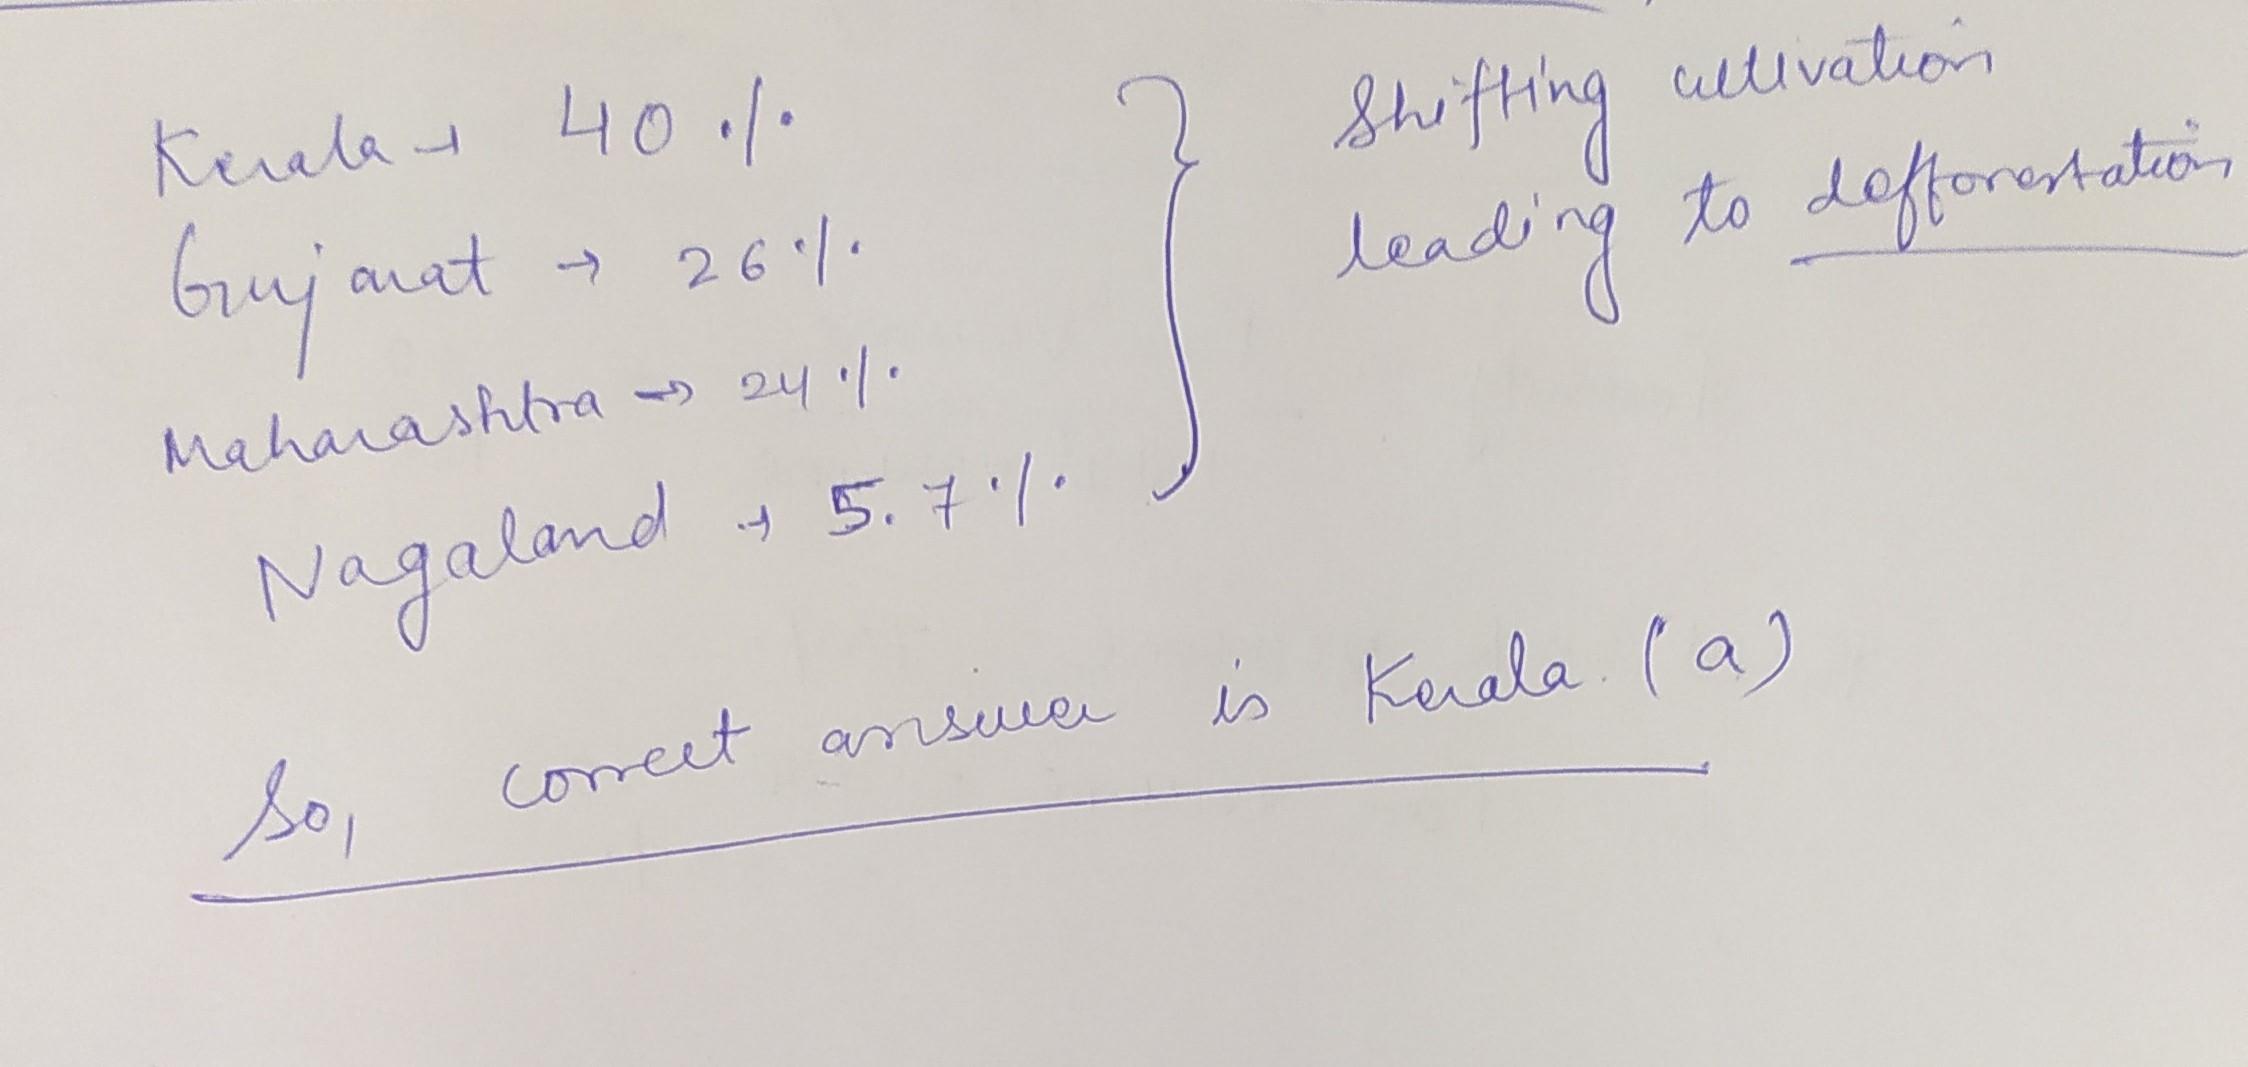 Kerala → 40 %
Gujarat → 26 %
Maharashtra → 24 %
Nagaland → 5.7 %
Shifting cultivation
leading to defforestation
So, correct answer is Kerala. (a)